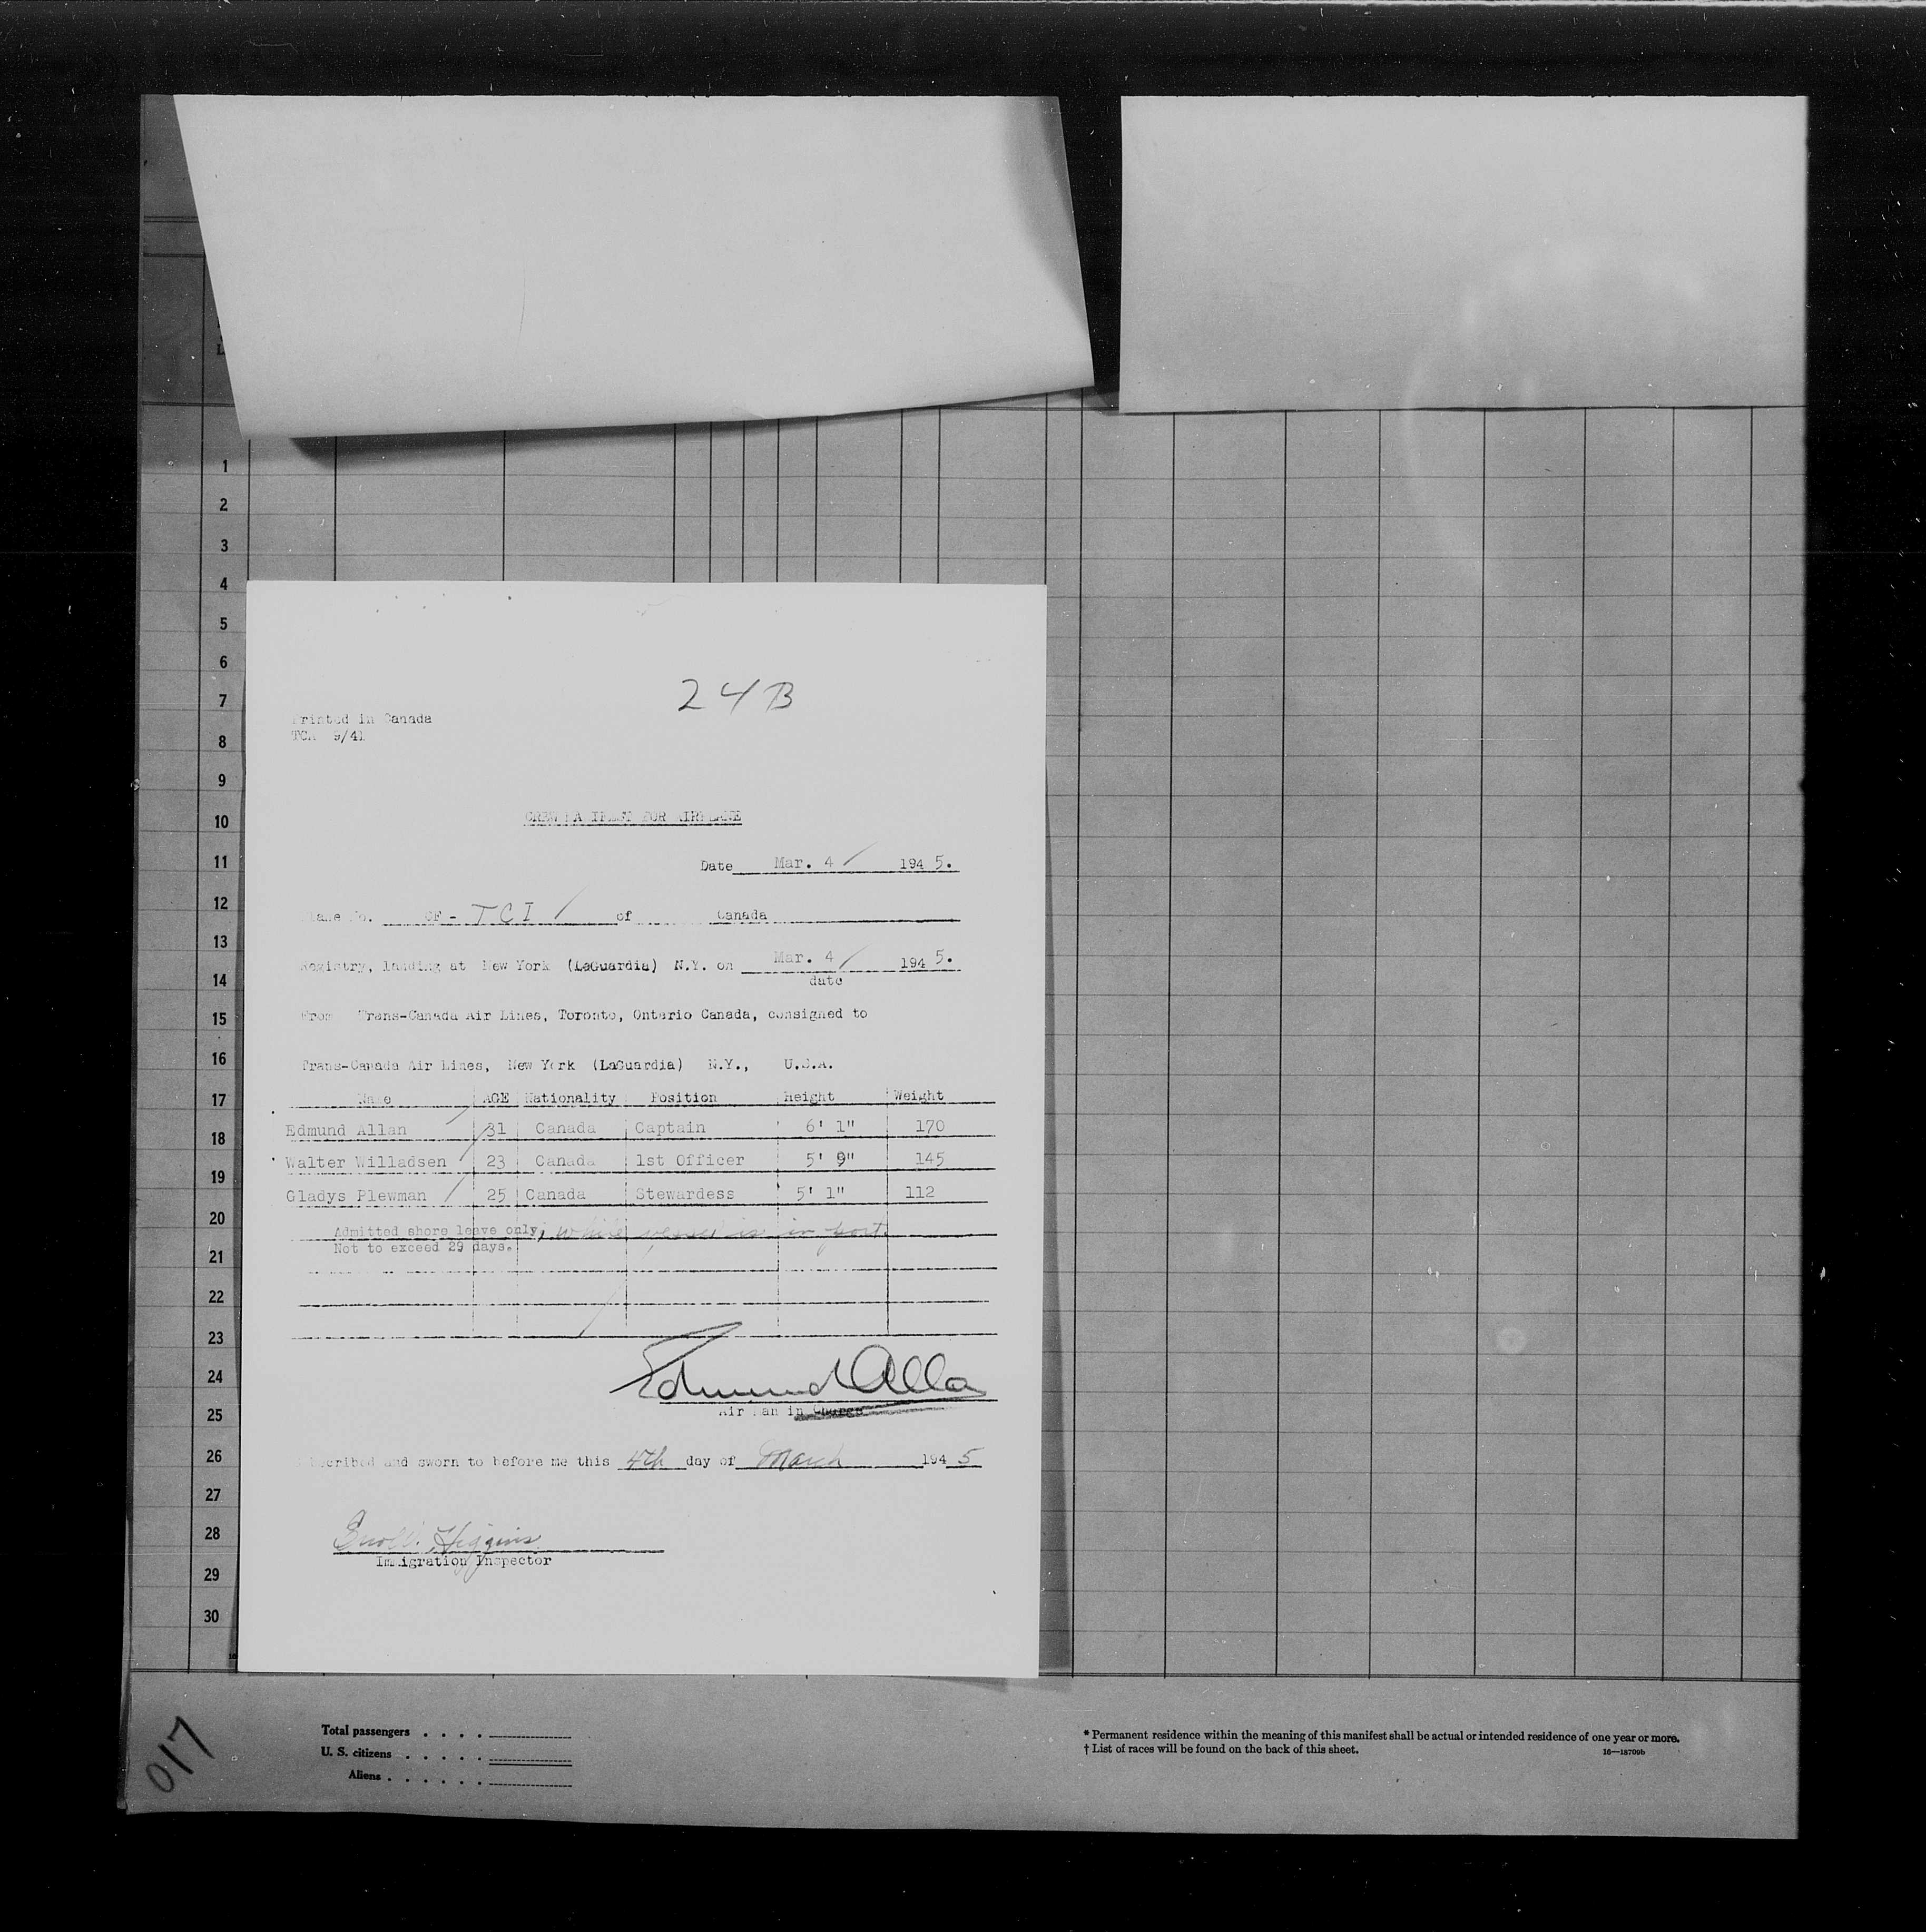 24B
Printed in Canada
TCA 9/41
CREW MANIFEST FOR AIRPLANE
Date Mar. 4 1945.
Plane No. CF-TCI of Canada
Registry, landing at New York (LaGuardia) N.Y. on Mar. 4 1945.
date
From Trans-Canada Air Lines, Toronto, Ontario Canada, consigned to
Trans-Canada Air Lines, New York (LaGuardia) N.Y., U.S.A.
Name AGE Nationality Position Height Weight
Edmund Allan 31 Canada Captain 6' 1" 170
Walter Willadsen 23 Canada 1st Officer 5' 9" 145
Gladys Plewman 25 Canada Stewardess 5' 1" 112
Admitted shore leave only, while vessel is in port.
Not to exceed 29 days.
Edmund Alla
Air Man in Charge
Subscribed and sworn to before me this 4th day of March 1945
Higgins
Immigration Inspector
1
2
3
4
5
6
7
8
9
10
11
12
13
14
15
16
17
18
19
20
21
22
23
24
25
26
27
28
29
30
017
Total passengers . . . .
U. S. citizens . . . . .
Aliens . . . . . .
* Permanent residence within the meaning of this manifest shall be actual or intended residence of one year or more.
† List of races will be found on the back of this sheet.
16—18709b